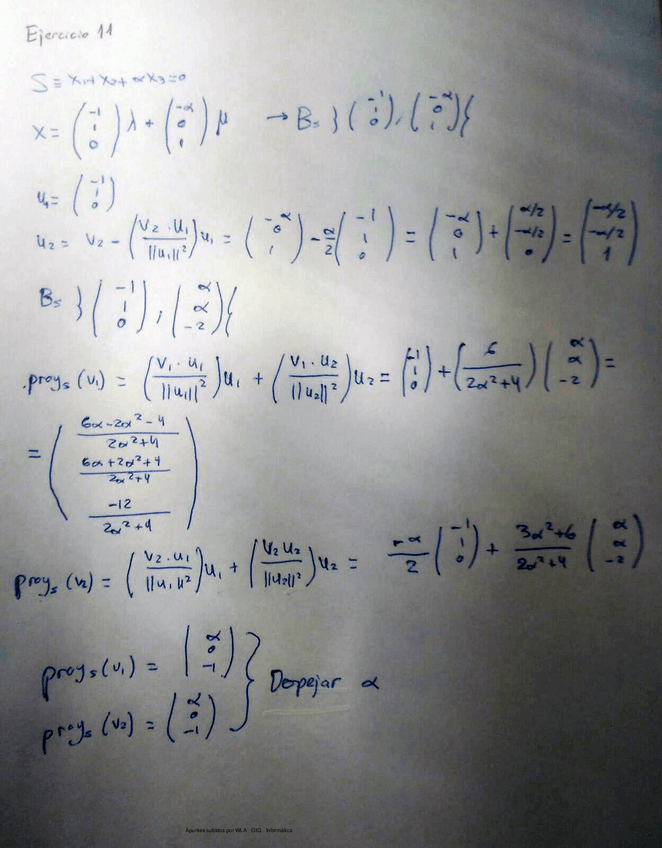 Ejercicio 11
S ≡ x₁+x₂+αx₃=0
x = (-1 1 0) λ + (-α 0 1) μ → Bs } (-1 1 0), (-α 0 1) {
u₁ = (-1 1 0)
u₂ = v₂ - (v₂·u₁ / ||u₁||²) u₁ = (-α 0 1) - α/2 (-1 1 0) = (-α 0 1) + (α/2 -α/2 0) = (-α/2 -α/2 1)
Bs } (-1 1 0), (α α -2) {
proys (v₁) = (v₁·u₁ / ||u₁||²) u₁ + (v₁·u₂ / ||u₂||²) u₂ = (-1 1 0) + (6 / 2α²+4) (α α -2) =
= (6α-2α²-4 / 2α²+4 6α+2α²+4 / 2α²+4 -12 / 2α²+4)
proys (v₂) = (v₂·u₁ / ||u₁||²) u₁ + (v₂ u₂ / ||u₂||²) u₂ = -α / 2 (-1 1 0) + 3α²+6 / 2α²+4 (α α -2)
proys (v₁) = (α 0 -1)
proys (v₂) = (α 0 -1) } Despejar α
Apuntes subidos por WLA - GIQ - Informática